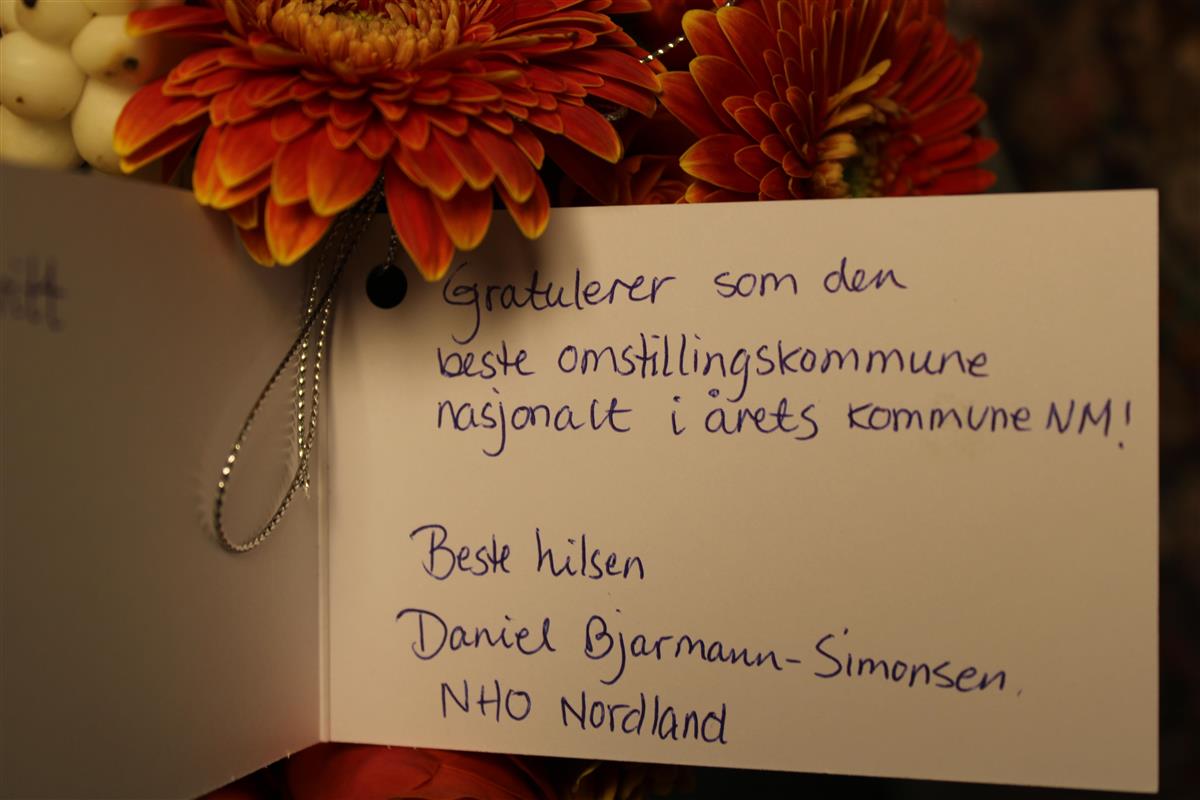 Gratulerer som den
beste omstillingskommune
nasjonalt i årets kommune NM!
Beste hilsen
Daniel Bjarmann-Simonsen.
NHO Nordland